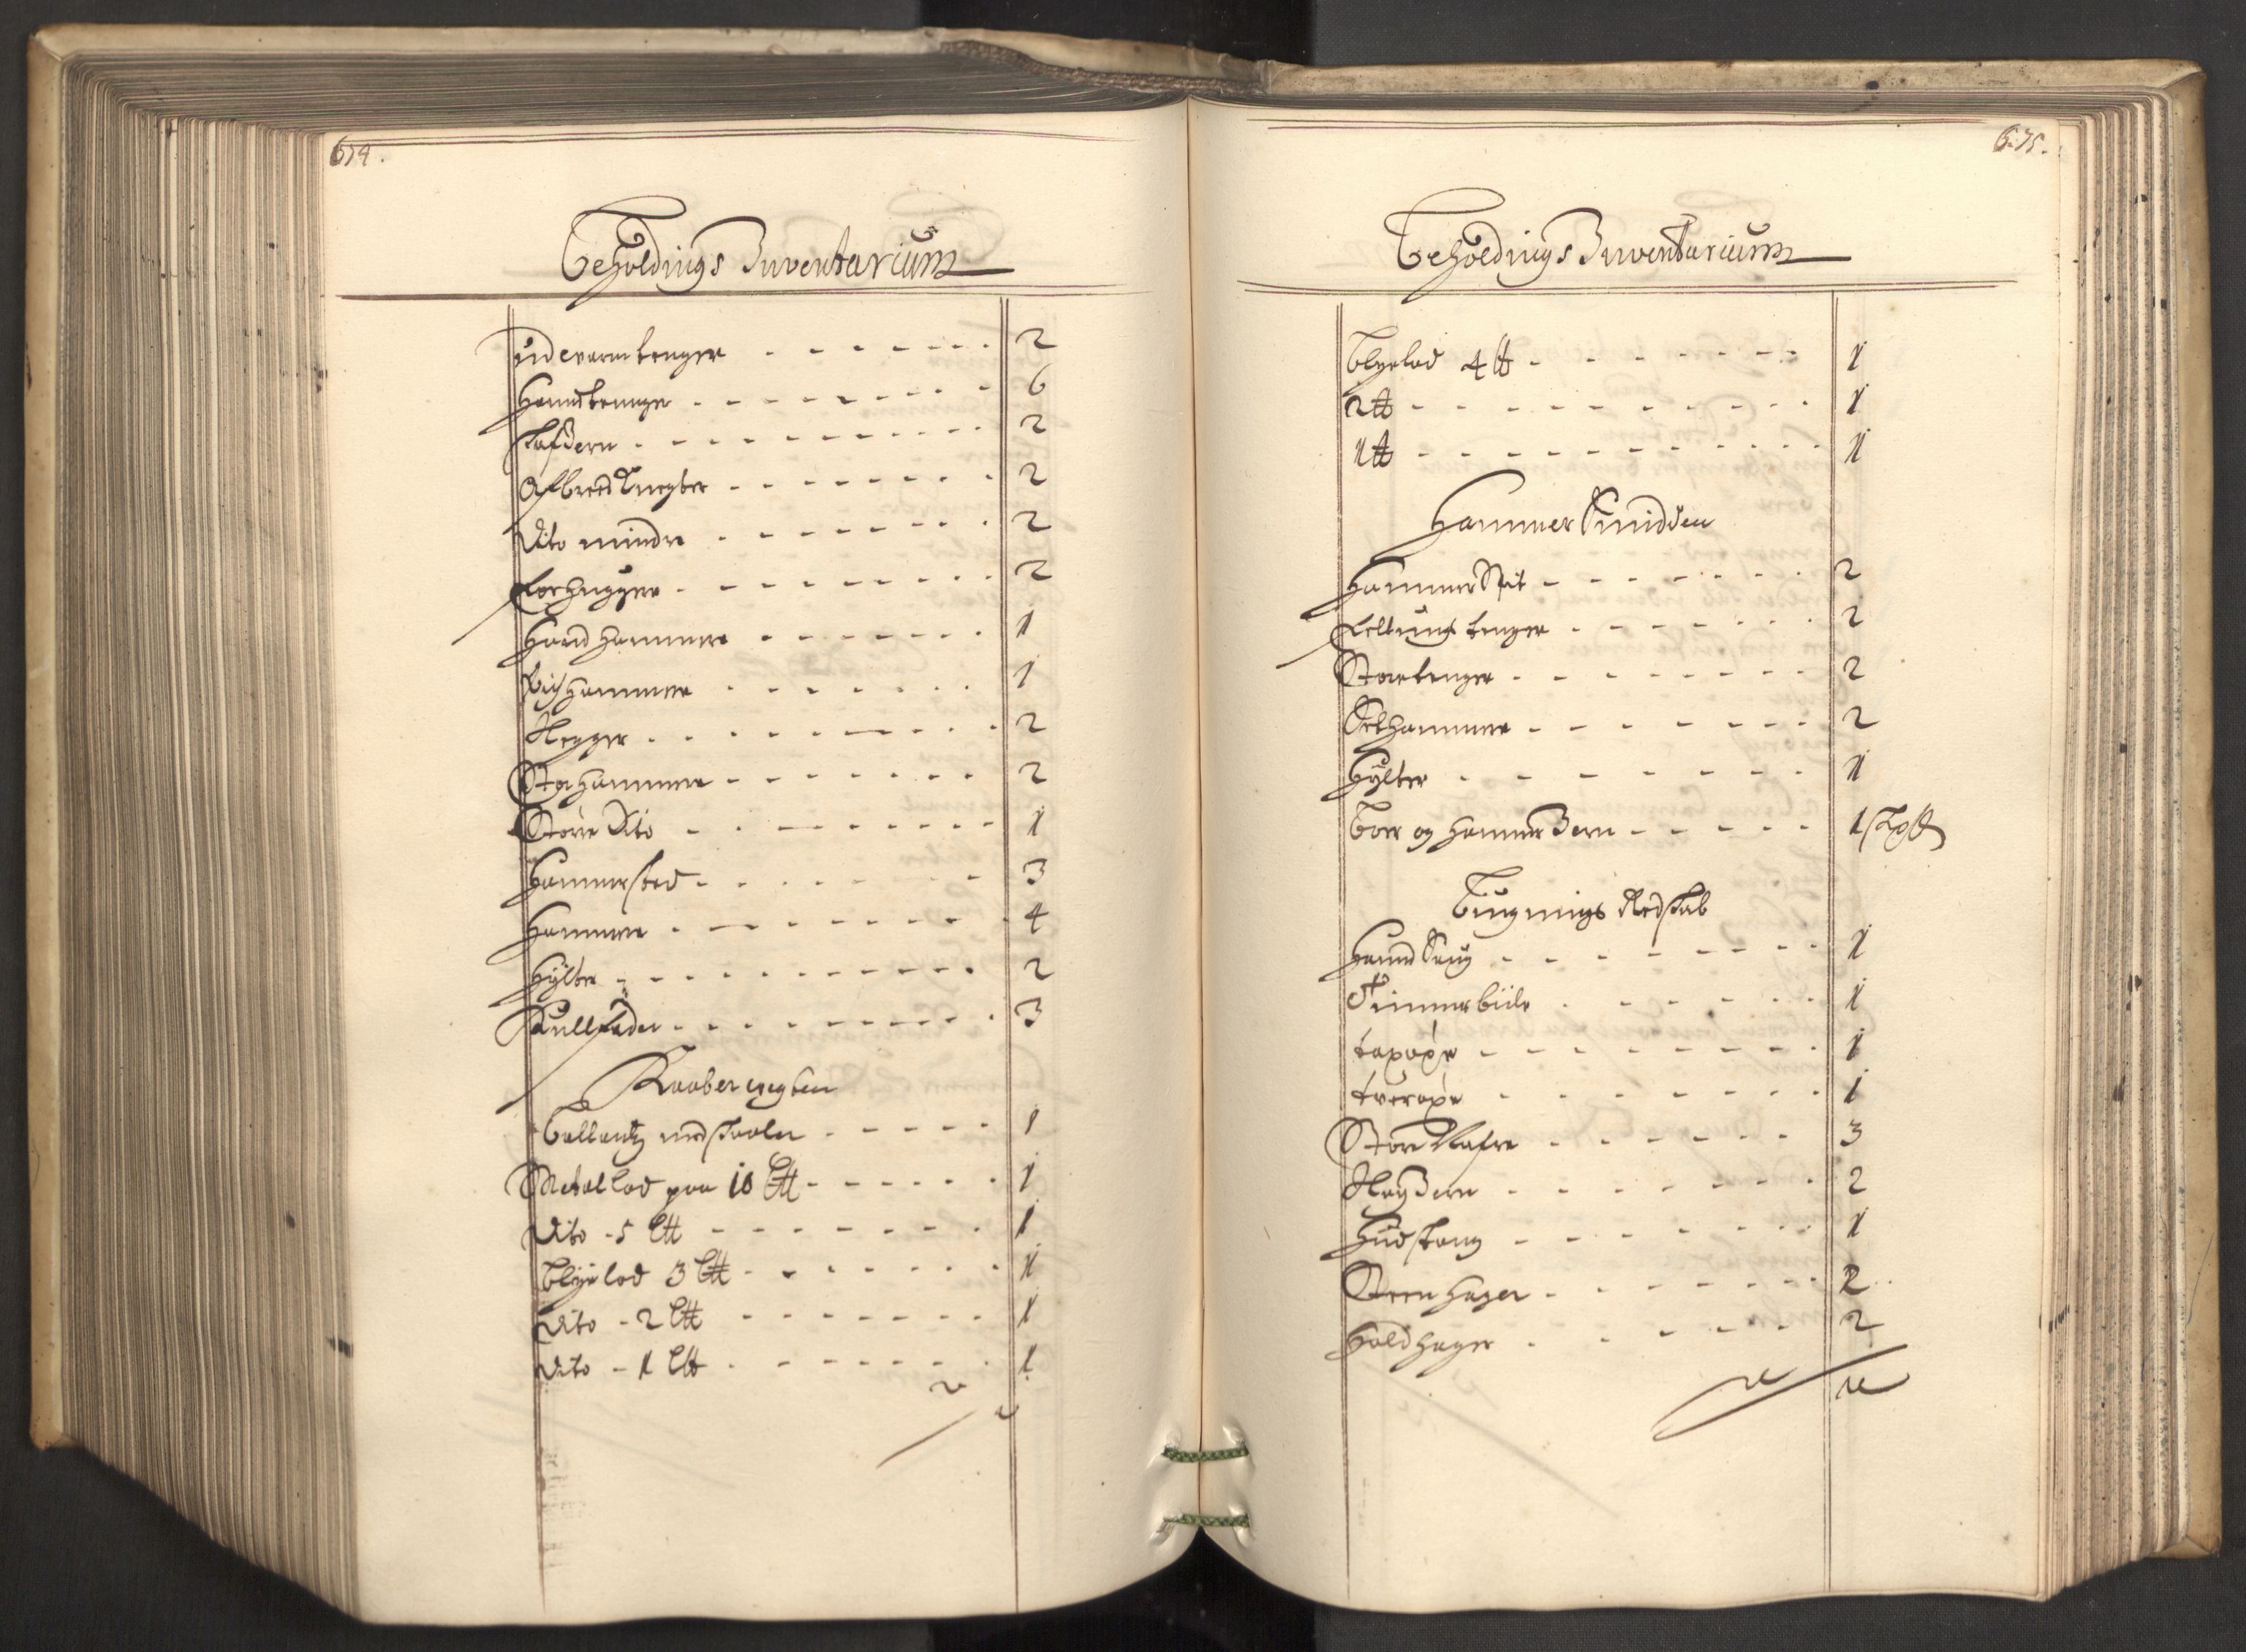 674.
Beholdings Inventarium
Udvarmtenger 2
Haandtenger 6
Stafiern 2
Afbred Knegter 2
Dito mindre 2
Forhugger 2
Haand hammere 1
Richhammer 1
Slegger 2
Storhammere 2
Større Dito 1
Hammersted 3
Hammere 4
Hÿlter 2
Kullfader 3
Kaabervegten
Ballantz med skaaler 1
Metallod paa 10 L℔ 1
Dito - 5 L℔ 1
Blÿelod 3 L℔ 1
Dito - 2 L℔ 1
Dito - 1 L℔ 1
675.
Beholdings Inventarium
Blyelod 4 ℔ 1
2 ℔ 1
1 ℔ 1
Hammer Smidden
Hammer Stit 2
tenger 2
Stoertenger 2
Sethammer 2
Hÿlter 1
Boer og hammer Iern 1 sk℔
Bygnings Redskab
Haand Saug 1
Timmerbiile 1
tapøxe 1
tverøxe 1
Store Nafre 3
Slagiern 2
Hudstang 1
Steen hager 2
Holdhager 2